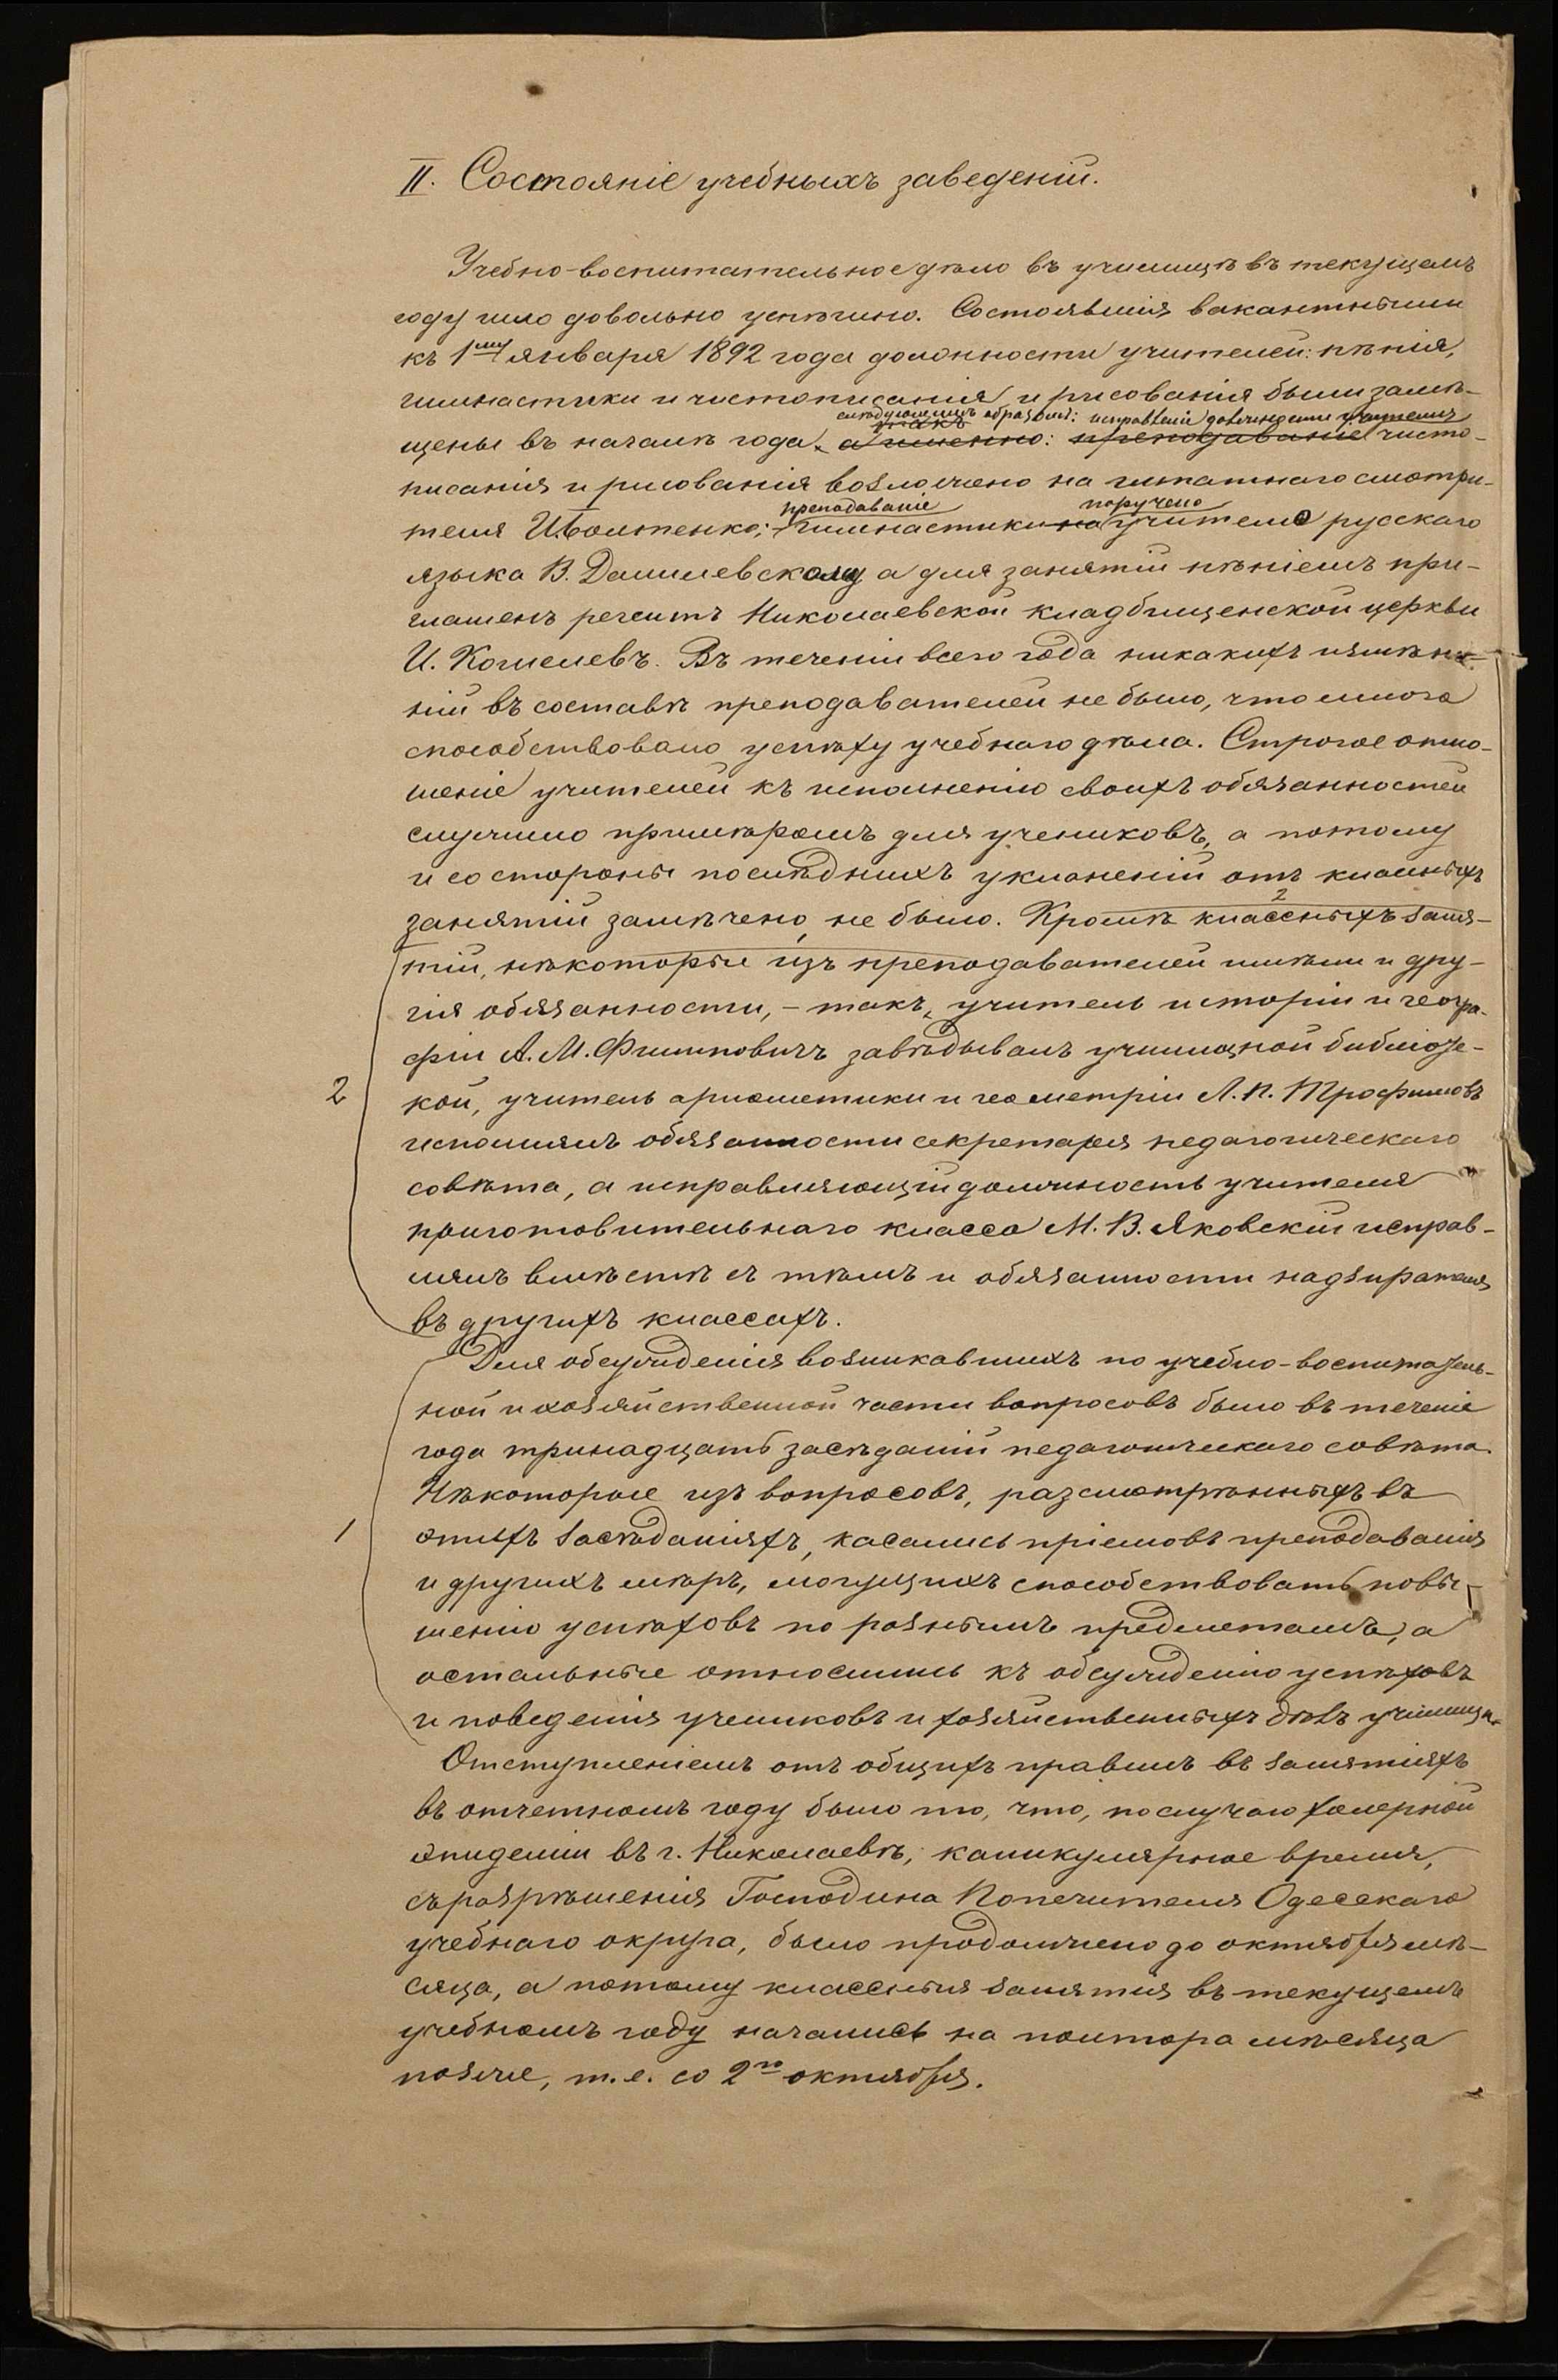 II. Состояніе учебныхъ заведеній.
Учебно-воспитательное дѣло въ училищѣ въ текущемъ
году шло довольно успѣшно. Состоявшія вакантными
къ 1му января 1892 года должности учителей: пѣнія,
гимнастики и чистописанія и рисованія были замѣ-
слѣдующимъ образомъ: исправленіе должности учителя
такъ
щены въ началѣ года, а именно: преподаваніе чисто-
писанія и рисованія возложено на штатнаго смотри-
преподаваніе поручено
теля И. Болтенко; гимнастики на учителю русскаго
языка В. Данилевскому а для занятій пѣніемъ при-
глашенъ регентъ Николаевской кладбищенской церкви
И. Кошелевъ. Въ теченіи всего года никакихъ измѣне-
ній въ составѣ преподавателей не было, что много
способствовало успѣху учебнаго дѣла. Строгое отно-
шеніе учителей къ исполненію своихъ обязанностей
служило примѣромъ для учениковъ, а потому
и со стороны послѣднихъ уклоненій отъ классныхъ
2
занятій замѣчено не было. Кромѣ классныхъ заня-
тій, нѣкоторые изъ преподавателей имѣли и дру-
гія обязанности, - такъ, учитель исторіи и геогра-
фіи А. М. Филиповичъ завѣдывалъ училищной библіоте-
2
кой, учитель ариѳметики и геометріи Л. П. Трофимовъ
исполнялъ обязанности секретаря педагогическаго
совѣта, а исправляющій должность учителя
приготовительнаго класса М. В. Яковскій исправ-
лялъ вмѣстѣ съ тѣмъ и обязанности надзирателя
въ другихъ классахъ.
Для обсужденія возникавшихъ по учебно-воспитатель-
ной и хозяйственной части вопросовъ было въ теченіе
года тринадцать засѣданій педагогическаго совѣта.
Нѣкоторые изъ вопросовъ, разсмотрѣнныхъ въ
1
этихъ засѣданіяхъ, касались пріемовъ преподаванія
и другихъ мѣръ, могущихъ способствовать повы-
шенію успѣховъ по разнымъ предметамъ, а
остальные относились къ обсужденію успѣховъ
и поведенія учениковъ и хозяйственныхъ дѣлъ училища.
Отступленіемъ отъ общихъ правилъ въ занятіяхъ
въ отчетномъ году было то, что, по случаю холерной
эпидеміи въ г. Николаевѣ, каникулярное время,
съ разрѣшенія Господина Попечителя Одесскаго
учебнаго округа, было продолжено до октября мѣ-
сяца, а потому классныя занятія въ текущемъ
учебномъ году начались на полтора мѣсяца
позже, т. е. со 2го октября.